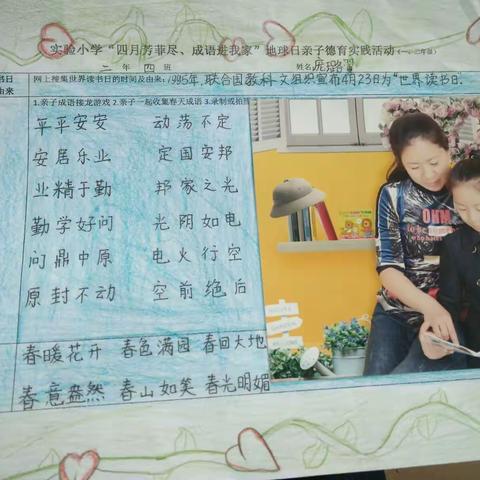 实验小学“四月芳菲尽、成语进我家”地球日亲子德育实践活动（一、二年级）
二 年 四 班 姓名
书日由来
网上搜集世界读书日的时间及由来：1995年，联合国教科文组织宣布4月23日为“世界读书日．
1.亲子成语接龙游戏 2.亲子一起收集春天成语 3.录制或拍照
平平安安 动荡不定
安居乐业 定国安邦
业精于勤 邦家之光
勤学好问 光阴如电
问鼎中原 电火行空
原封不动 空前绝后
春暖花开 春色满园 春回大地
春意盎然 春山如笑 春光明媚
OHM